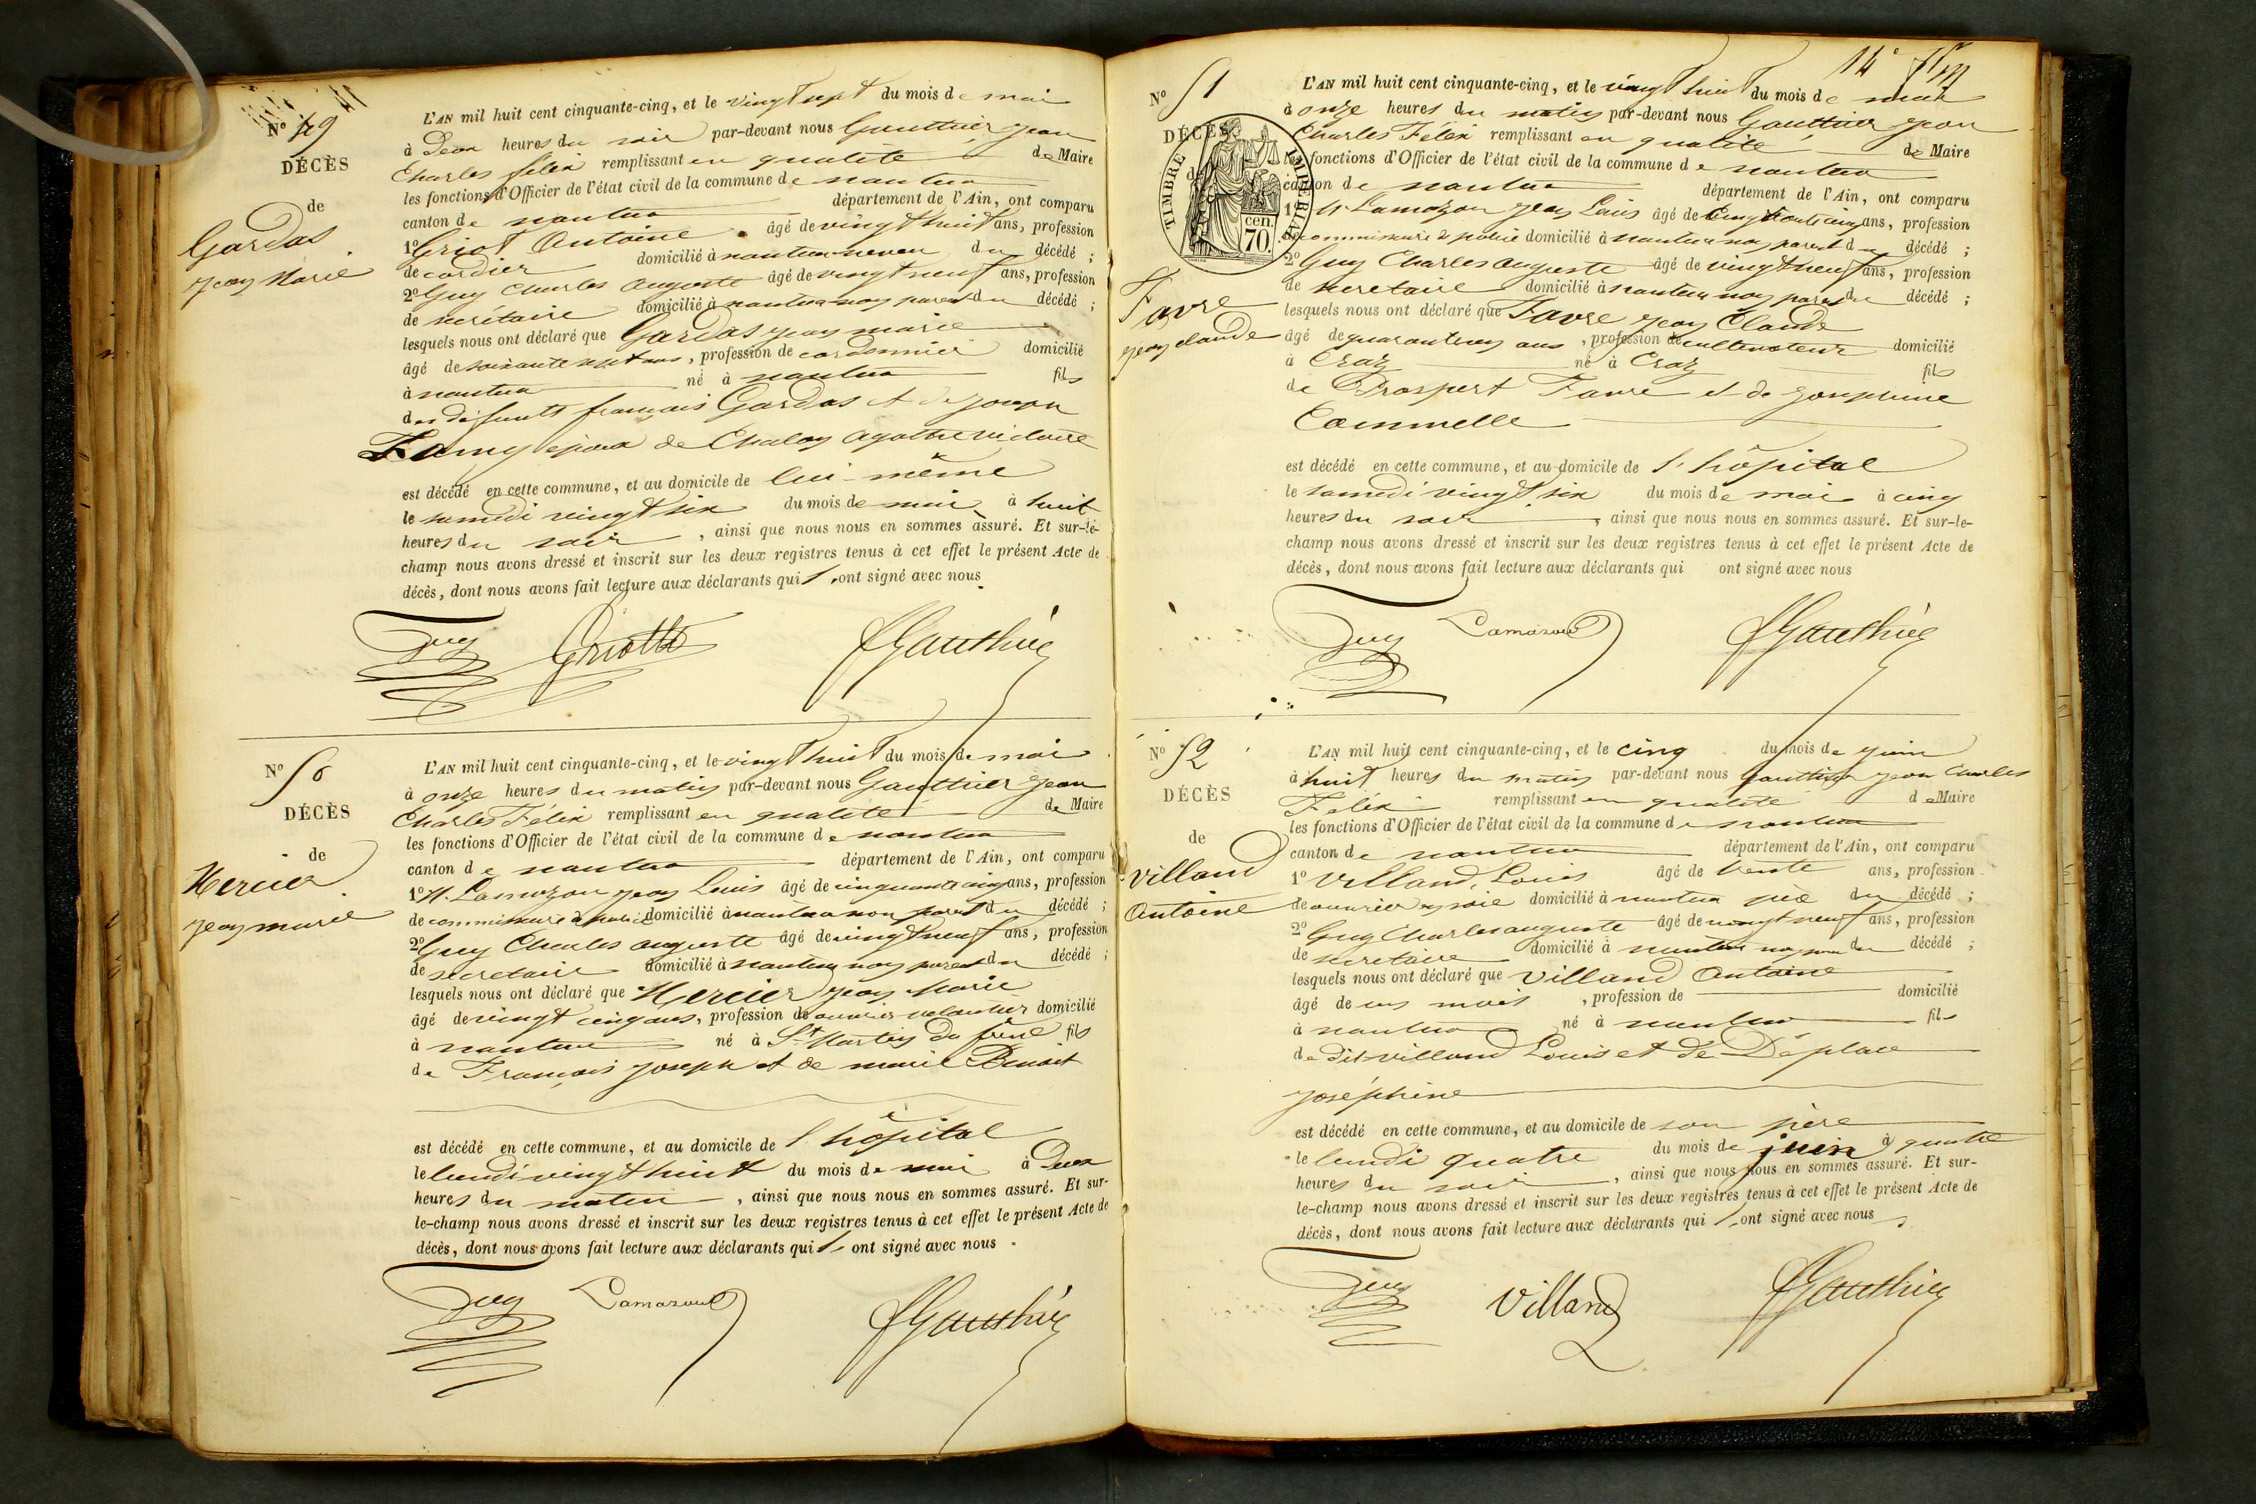 No 49
DÉCÈS
de
Gardas
Jean Marie
L'AN mil huit cent cinquante-cinq, et le vingt sept du mois de mai
à Deux heures du soir par-devant nous Gauthier Jean
Charles félix remplissant en qualité de Maire
les fonctions d'Officier de l'état civil de la commune de nantua
canton de nantua département de l'Ain, ont comparu
1o Griot Antoine âgé de vingt huit ans, profession
de cordier domicilié à nantua neveu du décédé ;
2o Guy Charles auguste âgé de vingt neuf ans, profession
de secrétaire domicilié à nantua non parent du décédé ;
lesquels nous ont déclaré que Gardas jean marie
âgé de soixante sept ans, profession de cordonnier domicilié
à nantua né à nantua fils
des défunts françois Gardas et de
époux de Chalon agathe victoire
est décédé en cette commune, et au domicile de lui-même
le samedi vingt six du mois de mai à huit
heures du soir, ainsi que nous nous en sommes assuré. Et sur-le-
champ nous avons dressé et inscrit sur les deux registres tenus à cet effet le présent Acte de
décès, dont nous avons fait lecture aux déclarants qui ont signé avec nous
Guy Griotto Gauthier
No 50
DÉCÈS
de
Mercier
jean marie
L'AN mil huit cent cinquante-cinq, et le vingt huit du mois de mai
à onze heures du matin par-devant nous Gauthier Jean
Charles Félix remplissant en qualité de Maire
les fonctions d'Officier de l'état civil de la commune de nantua
canton de nantua département de l'Ain, ont comparu
1o M. Lamozou jean Louis âgé de cinquante cinq ans, profession
de commissaire de police domicilié à nantua non parent du décédé ;
2o Guy Charles auguste âgé de vingt neuf ans, profession
de secretaire domicilié à nantua non parent du décédé ;
lesquels nous ont déclaré que Mercier jean Marie
âgé de vingt cinq ans, profession de ouvrier veloutier domicilié
à nantua né à St Martin du frêne fils
de François joseph et de marie Benoit
est décédé en cette commune, et au domicile de l'hôpital
le lundi vingt huit du mois de mai à Deux
heures du matin, ainsi que nous nous en sommes assuré. Et sur-
le-champ nous avons dressé et inscrit sur les deux registres tenus à cet effet le présent Acte de
décès, dont nous avons fait lecture aux déclarants qui ont signé avec nous.
Guy Lamazou Gauthier
14e
No 51
DÉCÈS
TIMBRE IMPÉRIAL
cen.
70.
Favre
jean claude
L'AN mil huit cent cinquante-cinq, et le vingt huit du mois de mai
à onze heures du matin par-devant nous Gauthier Jean
Charles Félix remplissant en qualité de Maire
les fonctions d'Officier de l'état civil de la commune de nantua
canton de nantua département de l'Ain, ont comparu
1o M Lamozou jean Louis âgé de cinquante cinq ans, profession
de commissaire de police domicilié à nantua non parent du décédé ;
2o Guy Charles auguste âgé de vingt neuf ans, profession
de secretaire domicilié à nantua non parent du décédé ;
lesquels nous ont déclaré que Favre jean Claude
âgé de quarante ans, profession de cultivateur domicilié
à Craz né à Craz fils
de Prospert Favre et de
est décédé en cette commune, et au domicile de l'hôpital
le samedi vingt six du mois de mai à cinq
heures du soir, ainsi que nous nous en sommes assuré. Et sur-le-
champ nous avons dressé et inscrit sur les deux registres tenus à cet effet le présent Acte de
décès, dont nous avons fait lecture aux déclarants qui ont signé avec nous
Guy Lamazou Gauthier
No 52
DÉCÈS
de
Villand
Antoine
L'AN mil huit cent cinquante-cinq, et le cinq du mois de juin
à huit heures du matin par-devant nous Gauthier jean Charles
Félix remplissant en qualité de Maire
les fonctions d'Officier de l'état civil de la commune de nantua
canton de nantua département de l'Ain, ont comparu
1o Villand, Louis âgé de trente ans, profession
de ouvrier en soie domicilié à nantua père du décédé ;
2o Guy Charles auguste âgé de vingt neuf ans, profession
de secretaire domicilié à nantua non parent du décédé ;
lesquels nous ont déclaré que Villand Antoine
âgé de un mois, profession de domicilié
à nantua né à nantua fils
de dit villand Louis et de Déplace
joséphine
est décédé en cette commune, et au domicile de son père
le lundi quatre du mois de juin à quatre
heures du soir, ainsi que nous nous en sommes assuré. Et sur-
le-champ nous avons dressé et inscrit sur les deux registres tenus à cet effet le présent Acte de
décès, dont nous avons fait lecture aux déclarants qui ont signé avec nous
Guy Villand Gauthier